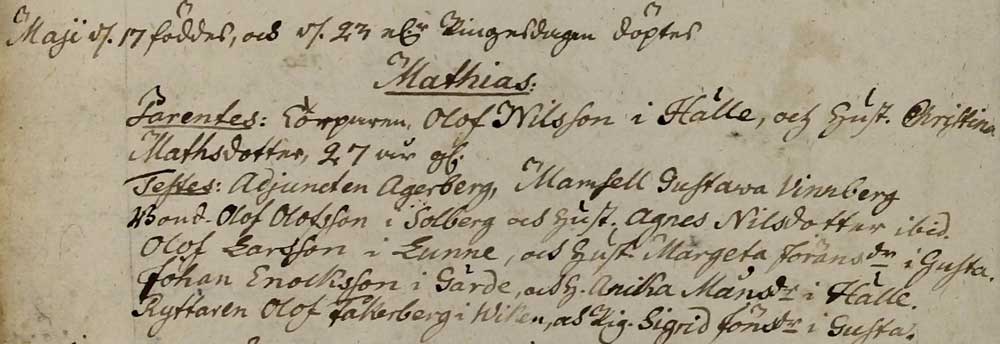 Maji d. 17 föddes, och d. 23 el:r Pingesdagen döptes
Mathias:
Parentes: Torparen, Olof Nilsson i Hälle, och Hust. Christina
Mathsdotter, 27 år gl:
Testes: Adjuncten Agerberg, Mamsell Gustawa Vinnberg
Bond. Olof Olofsson i Solberg och Hust. Agnes Nilsdotter ibid.
Olof Larsson i Lunne, och Hust. Margeta Jöransdr i Gusta.
Johan Enocksson i Gärde, och H. Anika Månsdr i Hälle.
Ryttaren Olof Fakerberg i Wiken, och Pig. Sigrid Jönsdr i Gusta.